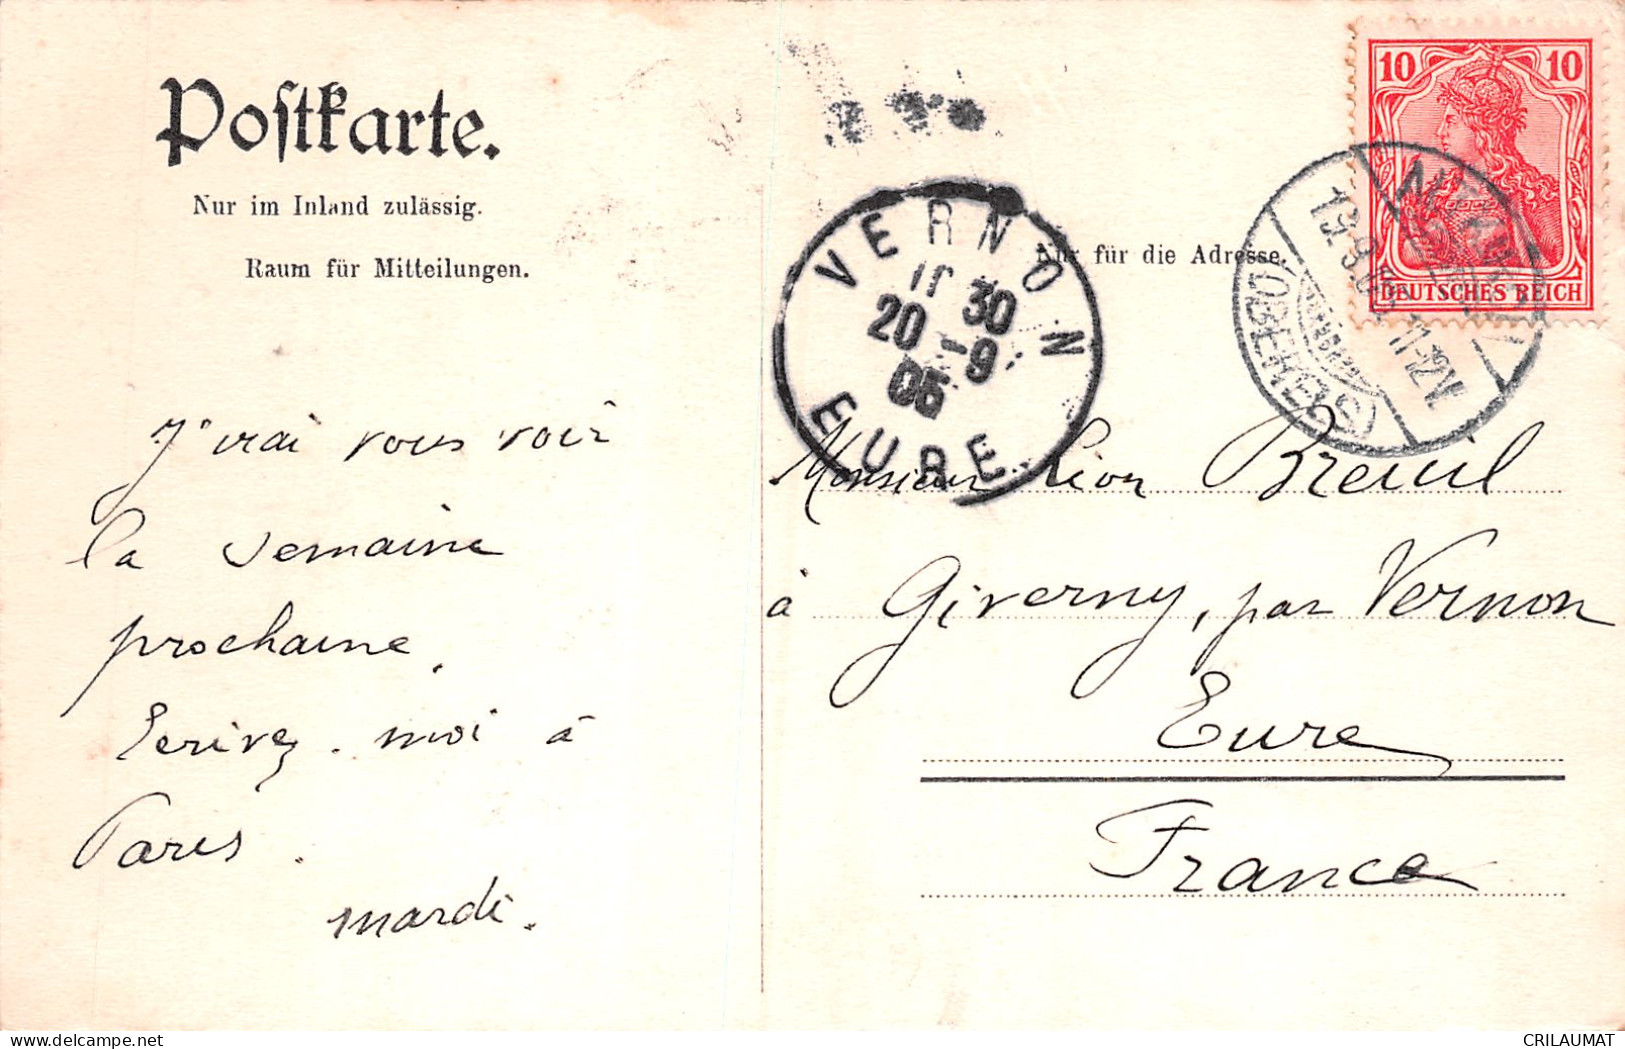 Postkarte.
Nur im Inland zulässig.
Raum für Mitteilungen.
Nur für die Adresse.
10 10
DEUTSCHES REICH
VERNON
11 30
20 - 9
05
EURE
(OBERELS)
J'irai vous voir
la semaine
prochaine.
Ecrivez-moi à
Paris.
mardi.
Monsieur Léon Breuil
à Giverny, par Vernon
Eure
France
CRILAUMAT